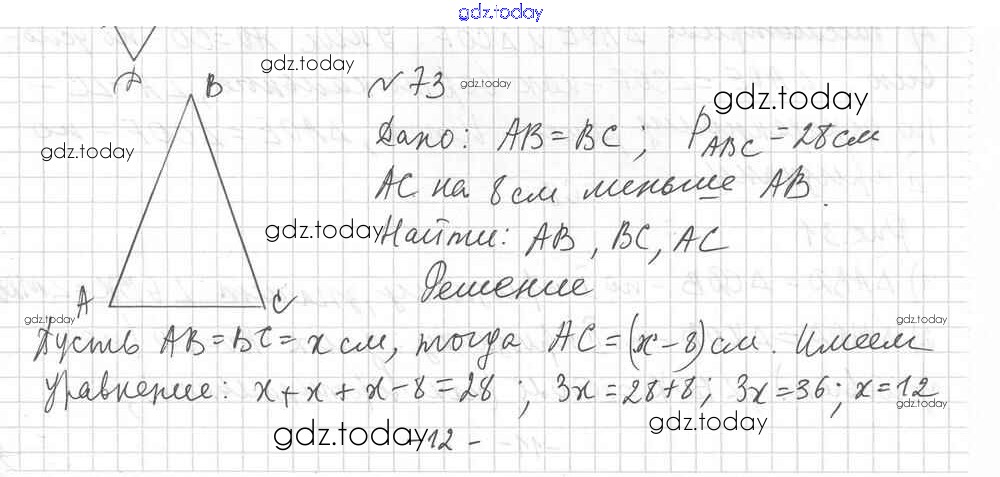 gdz.today
gdz.today
B
№73
gdz.today
gdz.today
Дано: AB = BC; P ABC = 28 см
gdz.today
AC на 8 см меньше AB.
gdz.today
Найти: AB, BC, AC
Решение
A
C
gdz.today
gdz.today
Пусть AB = BC = x см, тогда AC = (x - 8) см. Имеем
уравнение: x + x + x - 8 = 28; 3x = 28 + 8; 3x = 36; x = 12
gdz.today
gdz.today
gdz.today
12 -